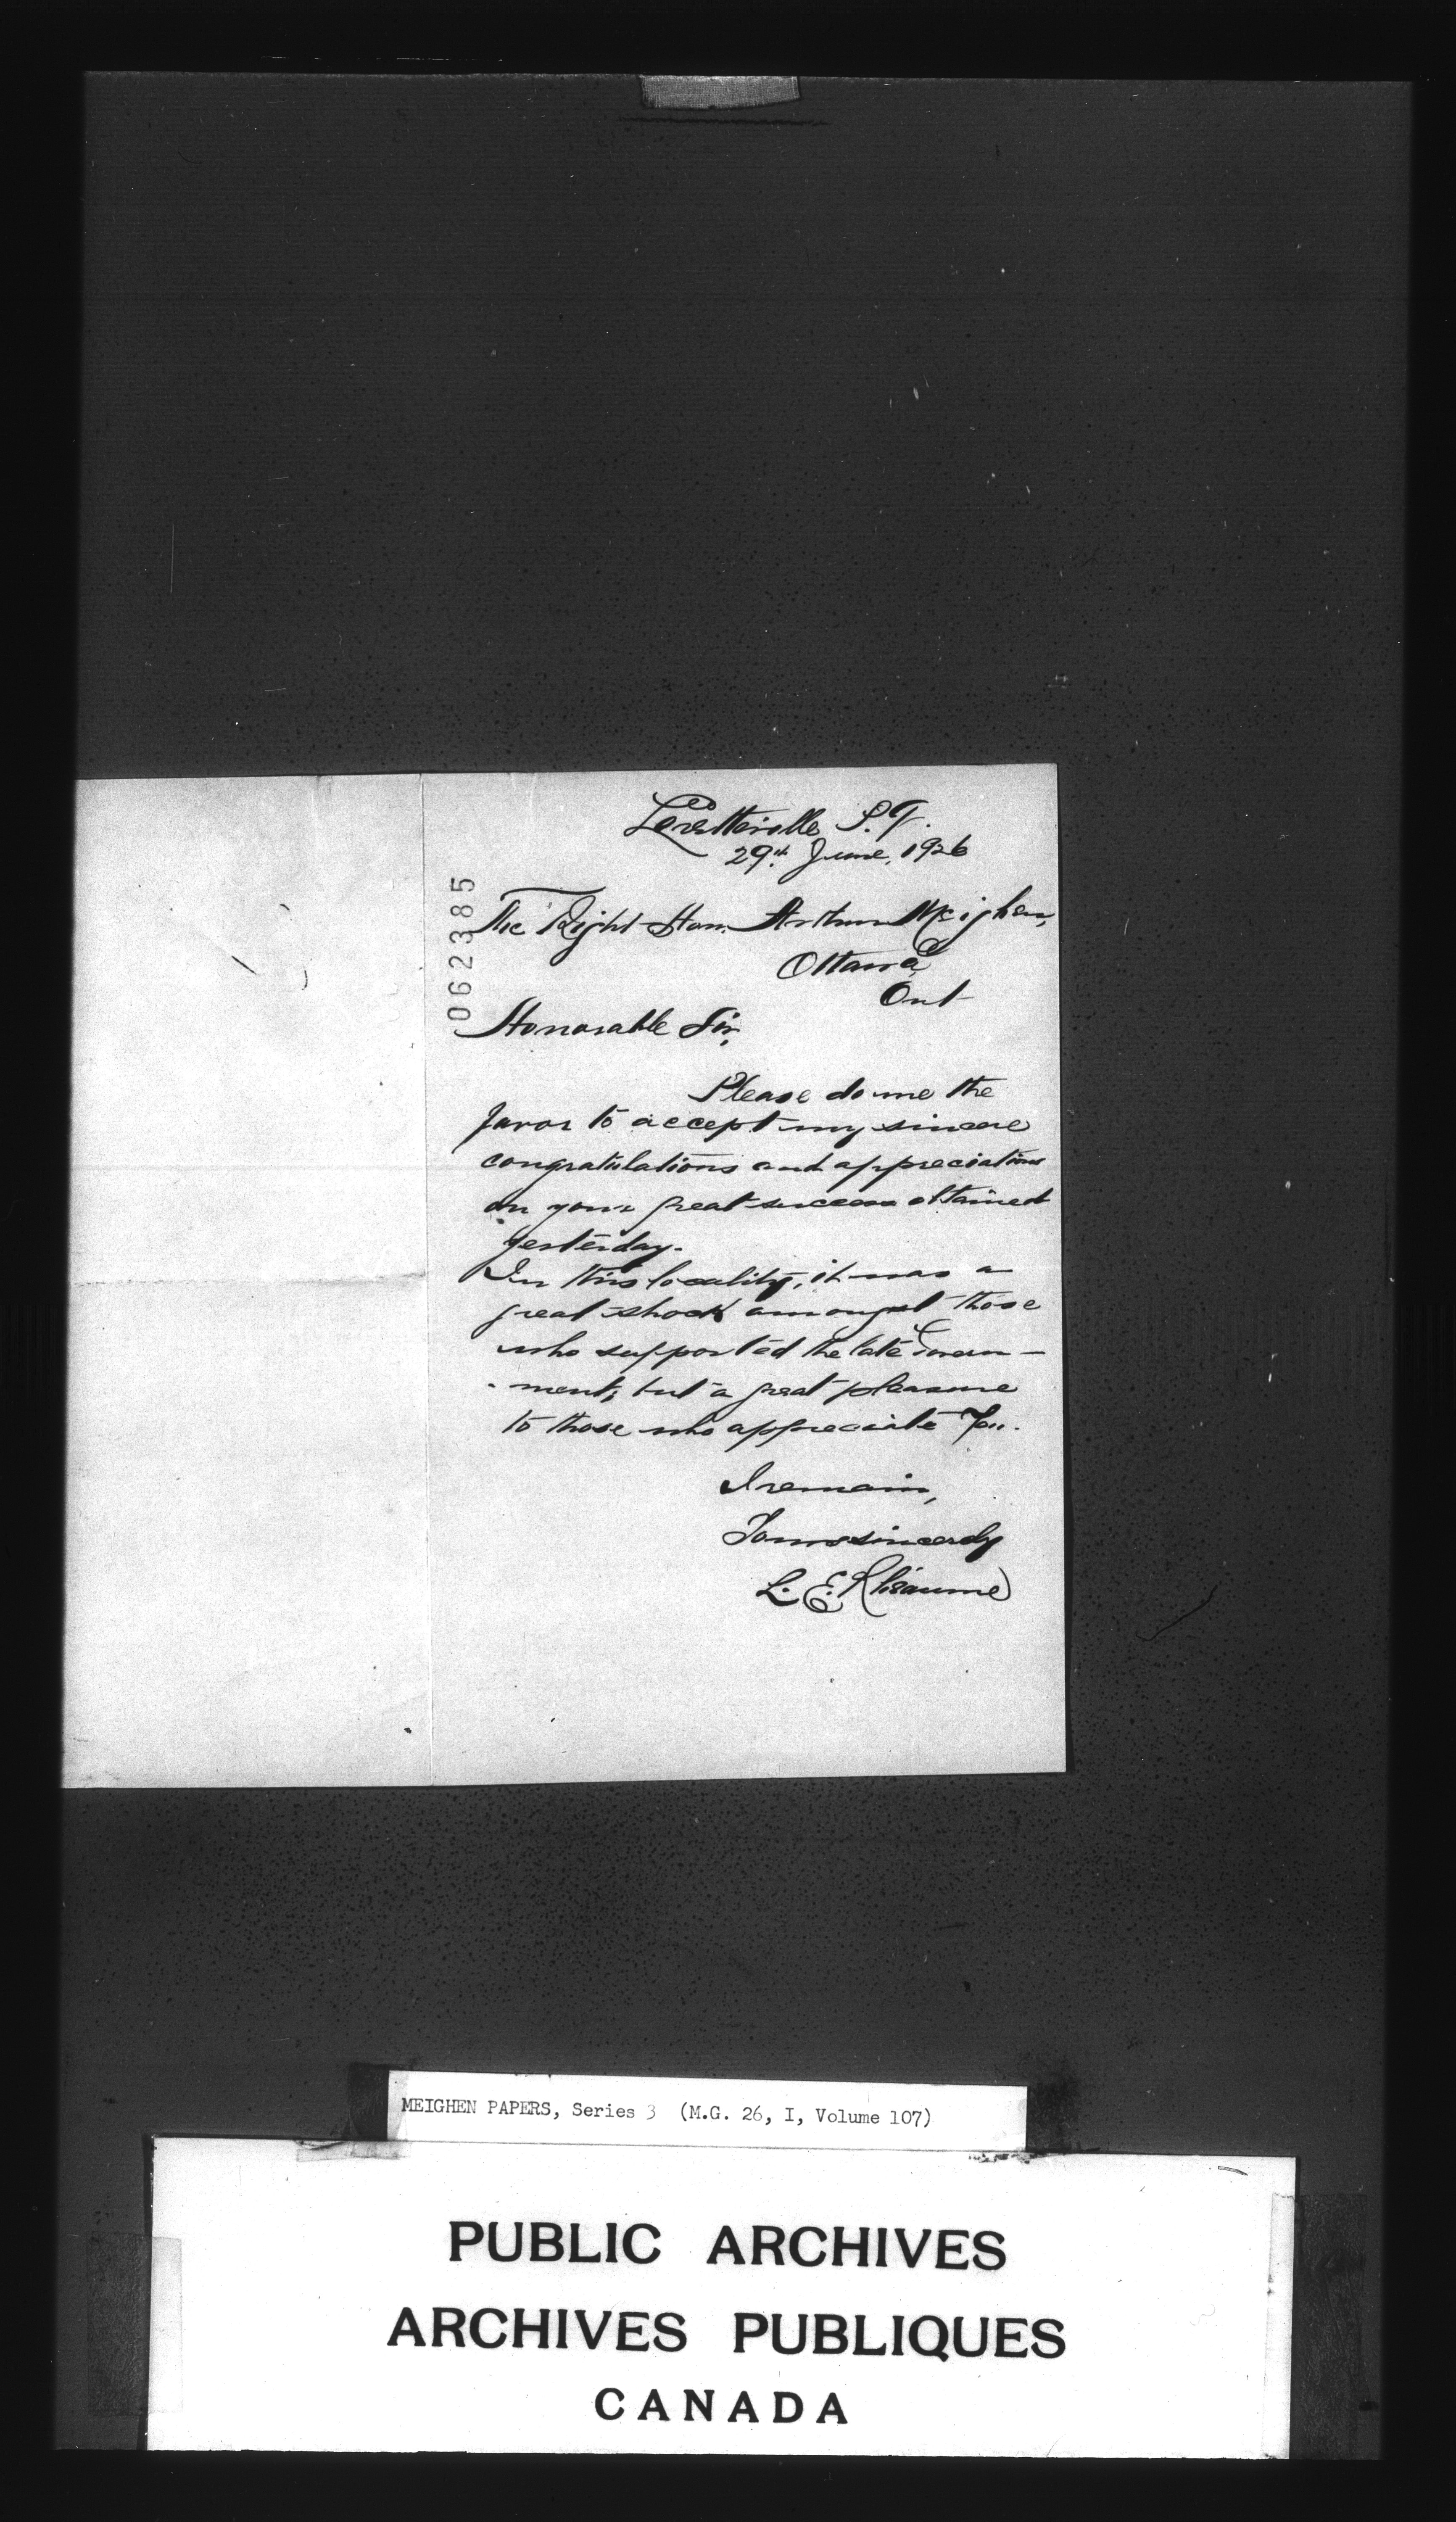 Loretteville P.Q.
29th June, 1926
062385
The Right Hon. Arthur Meighen,
Ottawa,
Ont
Honorable Sir,
Please do me the
favor to accept my sincere
congratulations and appreciations
on your great success obtained
yesterday.
In this locality, it was a
great shock amongst those
who supported the late Govern-
-ment, but a great pleasure
to those who appreciate You.
I remain,
Yours sincerely
L. E. Rhéaume
MEIGHEN PAPERS, Series 3 (M.G. 26, I, Volume 107)
PUBLIC ARCHIVES
ARCHIVES PUBLIQUES
CANADA